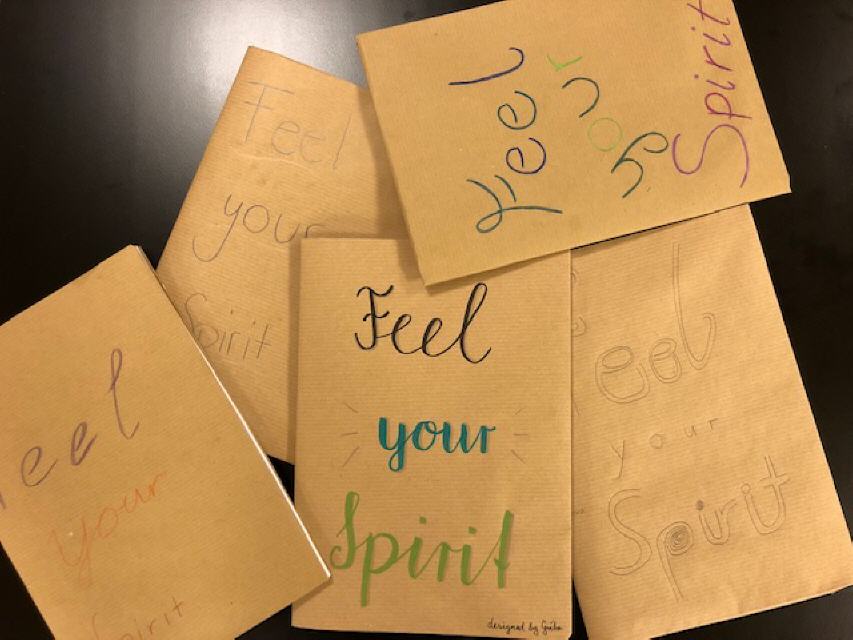 Feel
your
Spirit
Feel
your
Spirit
eel
your
Spirit
Feel
your
Spirit
designed by
eel
your
Spirit